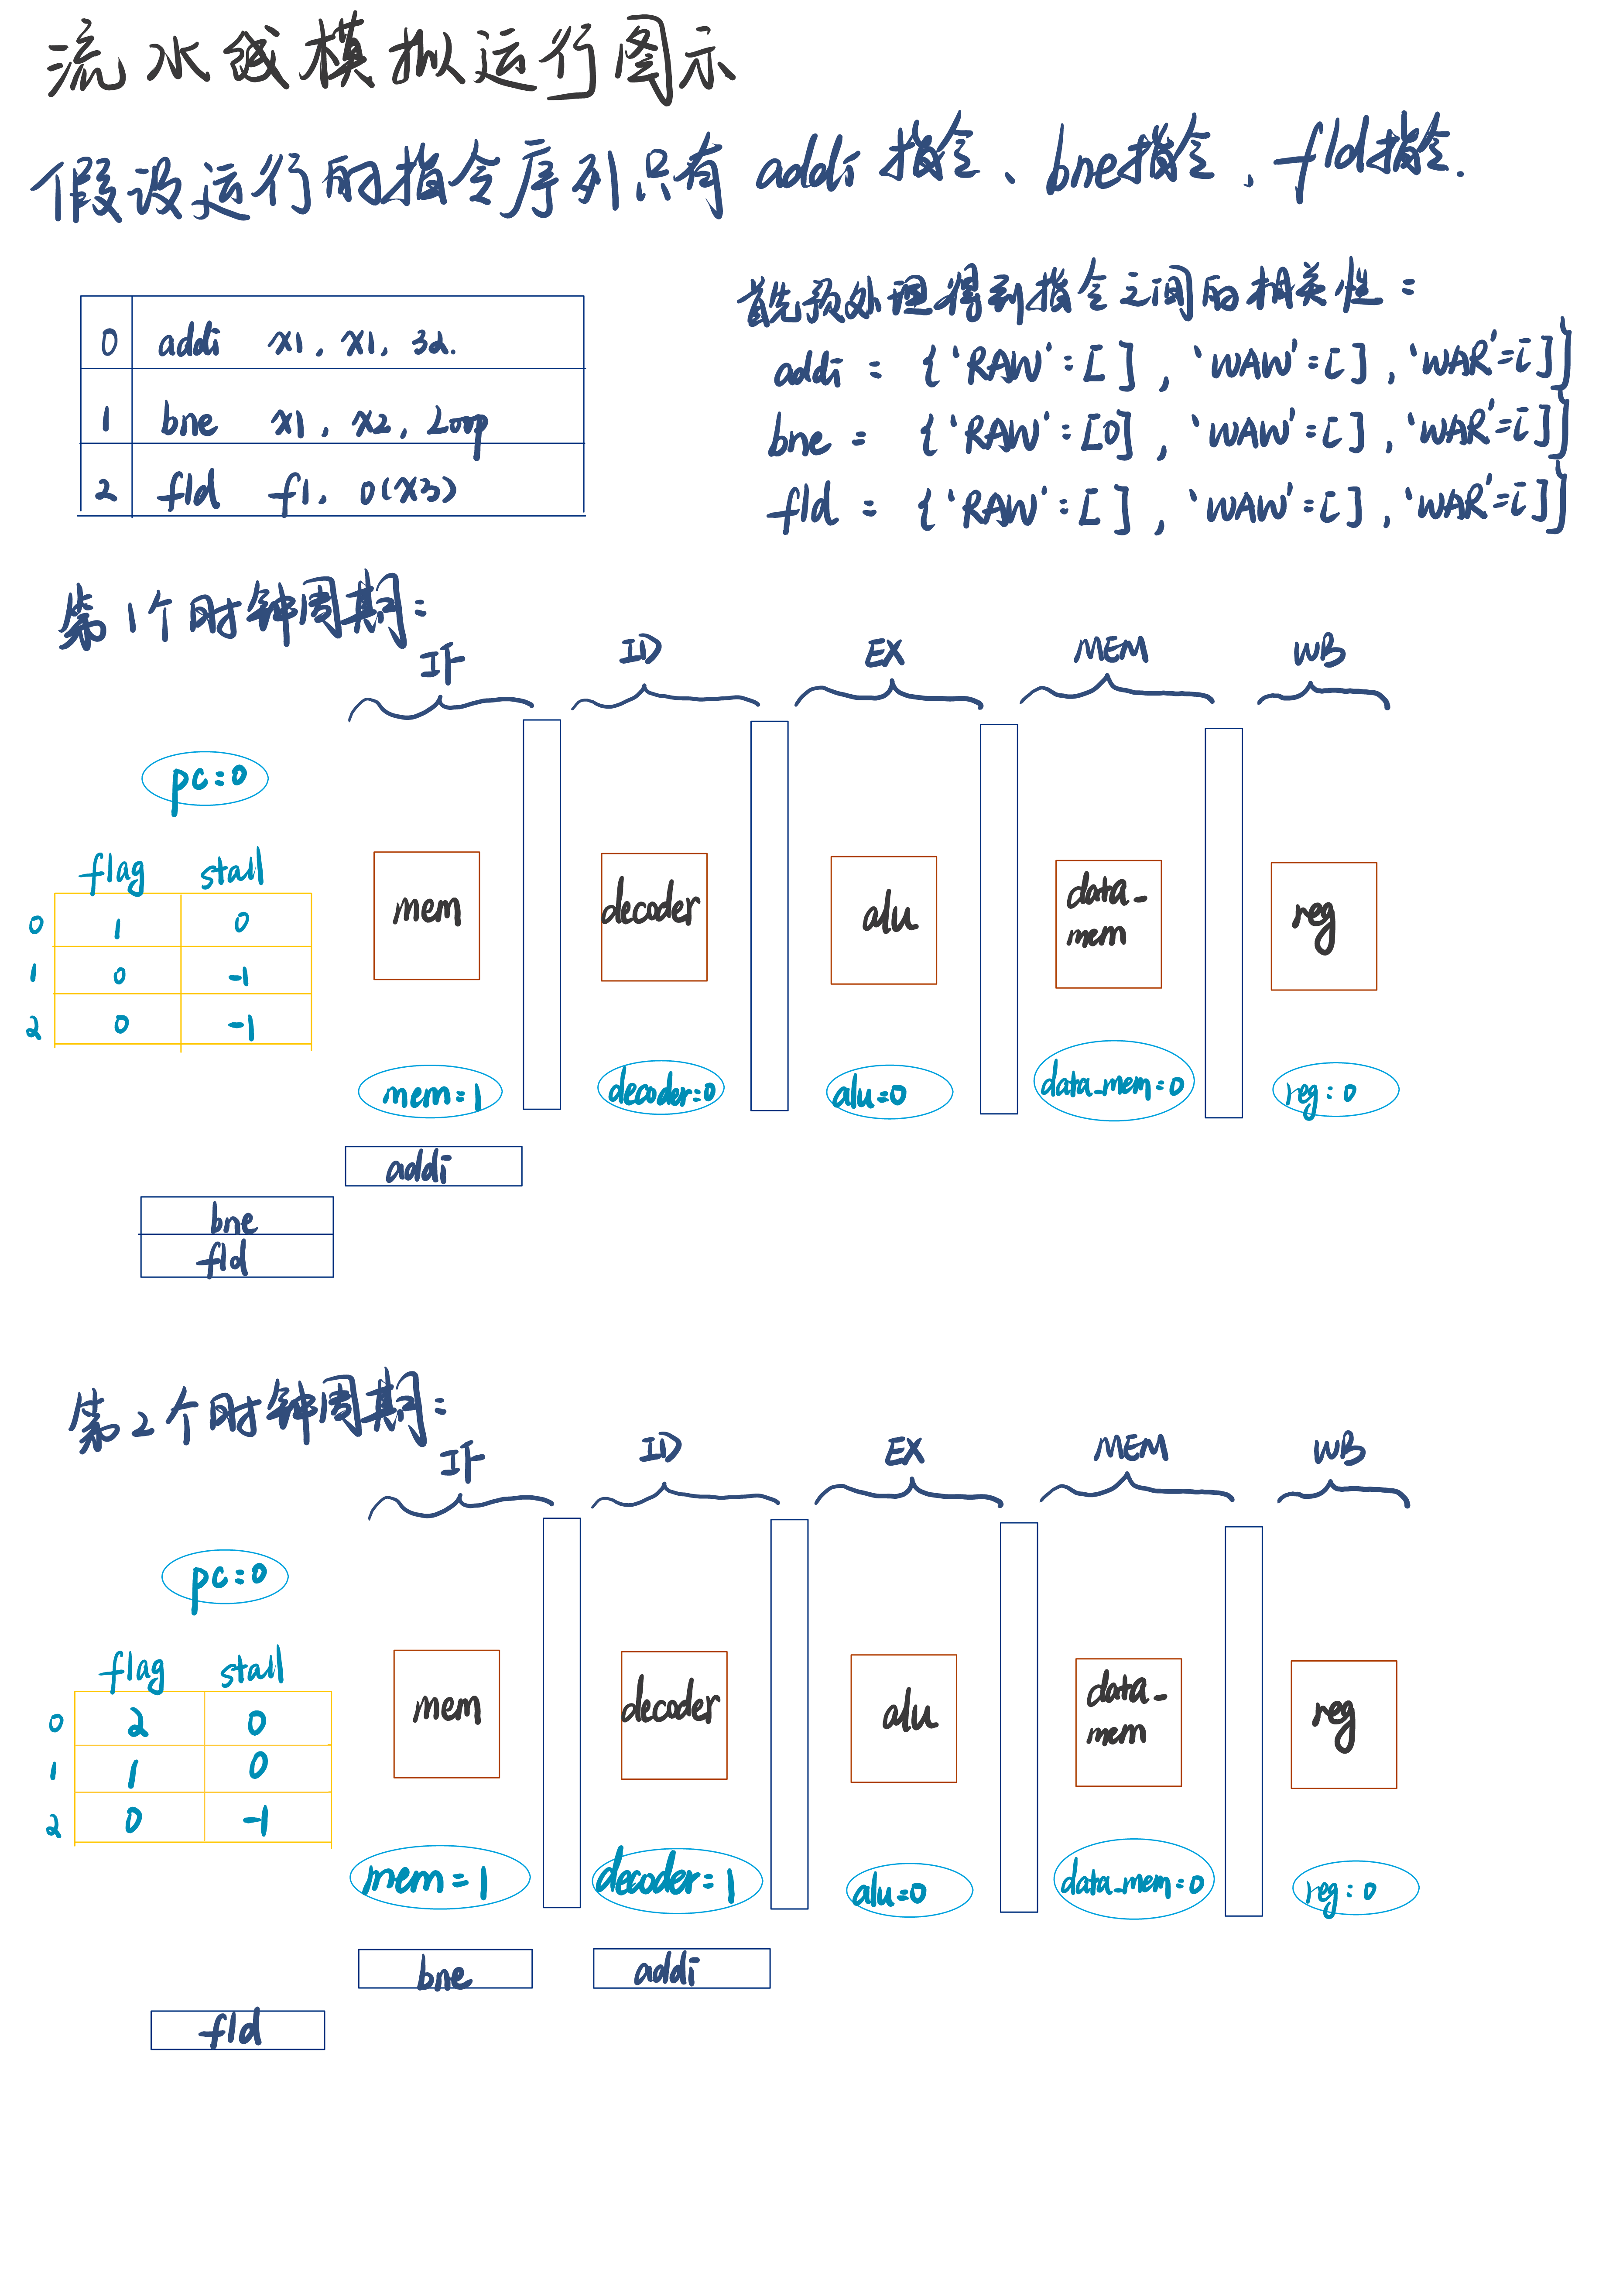 流水线模拟运行图示
假设运行的指令序列只有 addi 指令、bne指令、fld指令.
首先预处理得到指令之间的相关性：
0 addi x1, x1, 32.
1 bne x1, x2, Loop
2 fld f1, 0(x3)
addi = {'RAW':[], 'WAW':[], 'WAR':[]}
bne = {'RAW':[0], 'WAW':[], 'WAR':[]}
fld = {'RAW':[], 'WAW':[], 'WAR':[]}
第1个时钟周期：
IF ID EX MEM WB
pc=0
flag stall
0 1 0
1 0 -1
2 0 -1
mem decoder alu data_mem reg
mem=1 decoder=0 alu=0 data_mem=0 reg:0
addi
bne
fld
第2个时钟周期：
IF ID EX MEM WB
pc=0
flag stall
0 2 0
1 1 0
2 0 -1
mem decoder alu data_mem reg
mem=1 decoder=1 alu=0 data_mem=0 reg:0
bne addi
fld